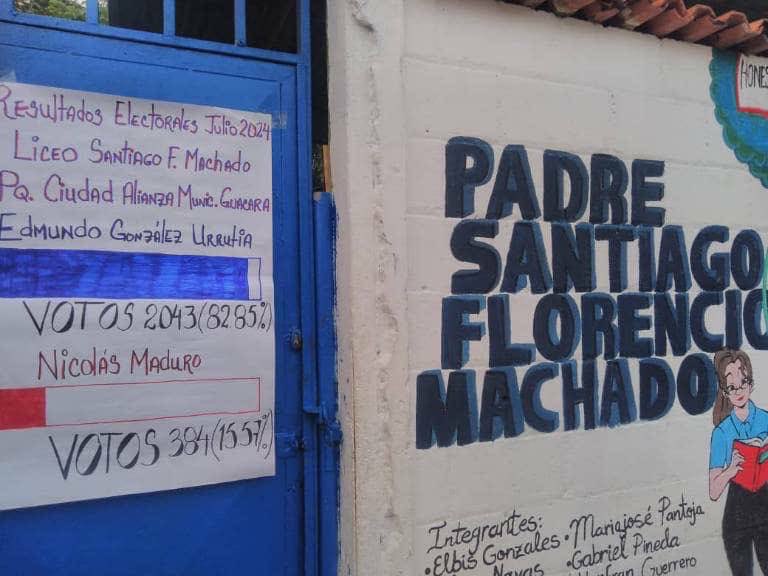 Resultados Electorales Julio 2024
Liceo Santiago F. Machado
Pq. Ciudad Alianza Munic. Guacara
Edmundo González Urrutia
VOTOS 2043 (82.85%)
Nicolás Maduro
VOTOS 384 (15.57%)
PADRE
SANTIAGO
FLORENCIO
MACHADO
Integrantes:
• Elbis Gonzales
Navas
• Mariajosé Pantoja
• Gabriel Pineda
Guerrero